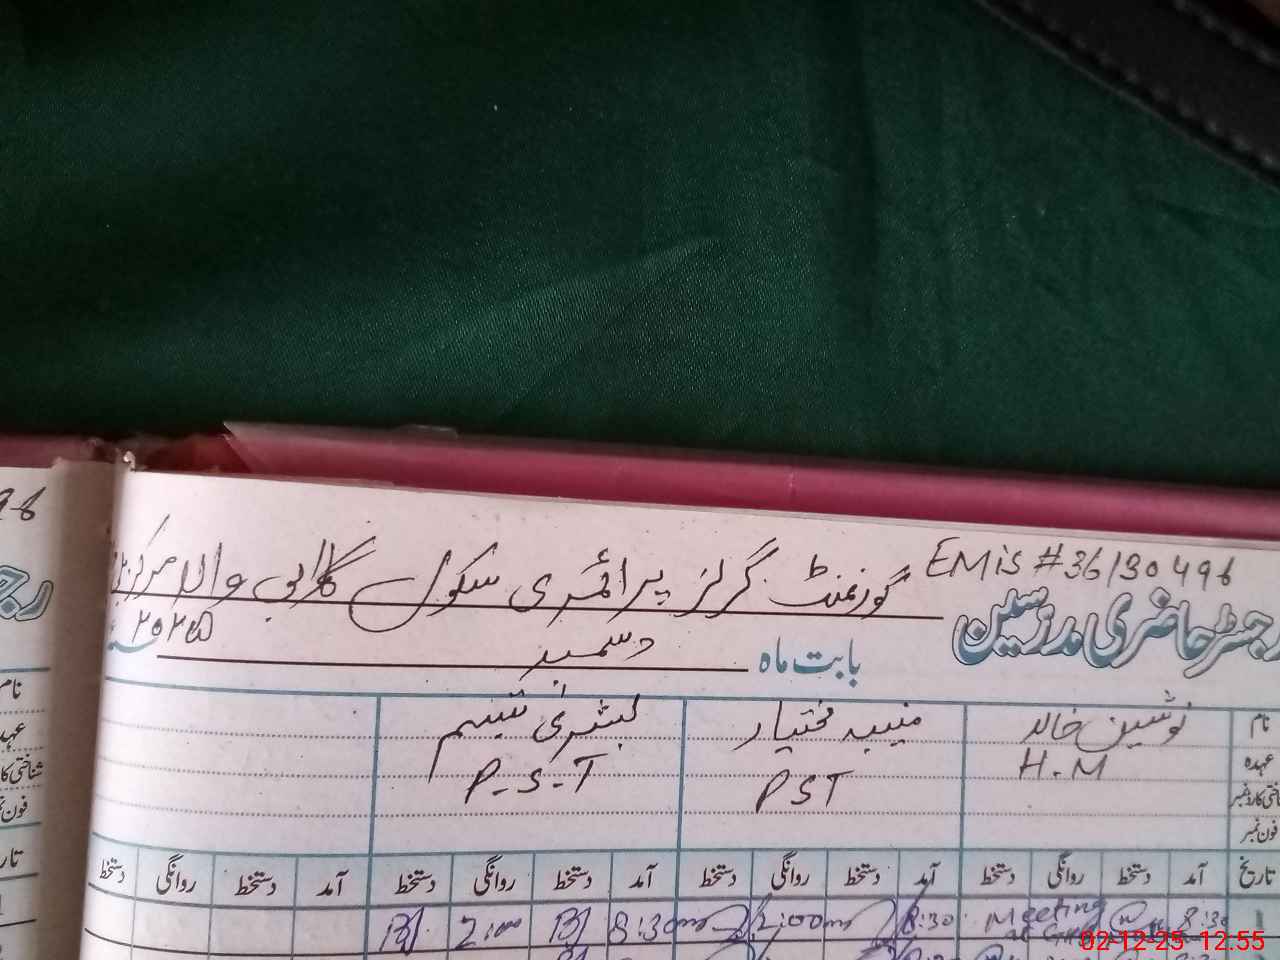 EMis # 36130496
گورنمنٹ گرلز پرائمری سکول گلابی والا مرکز
رجسٹر حاضری مدرسین
بابت ماہ دسمبر سنہ ۲۰۲۵ء
نام نوشین خالد منیبہ مختیار بشریٰ تبسم
عہدہ H.M PST P.S.T
شناختی کارڈ نمبر
فون نمبر
تاریخ آمد دستخط روانگی دستخط آمد دستخط روانگی دستخط آمد دستخط روانگی دستخط آمد دستخط روانگی دستخط
1 8:30 Meeting at 8:30 2:00 8:30 2:00
02-12-25 12:55